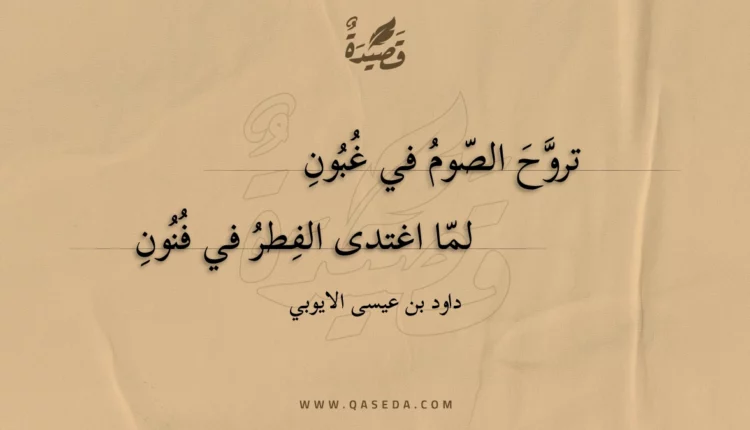 قَصِيدَةٌ
تروَّحَ الصّومُ في غُبُونِ
لمّا اغتدى الفِطرُ في فُنُونِ
داود بن عيسى الايوبي
WWW.QASEDA.COM